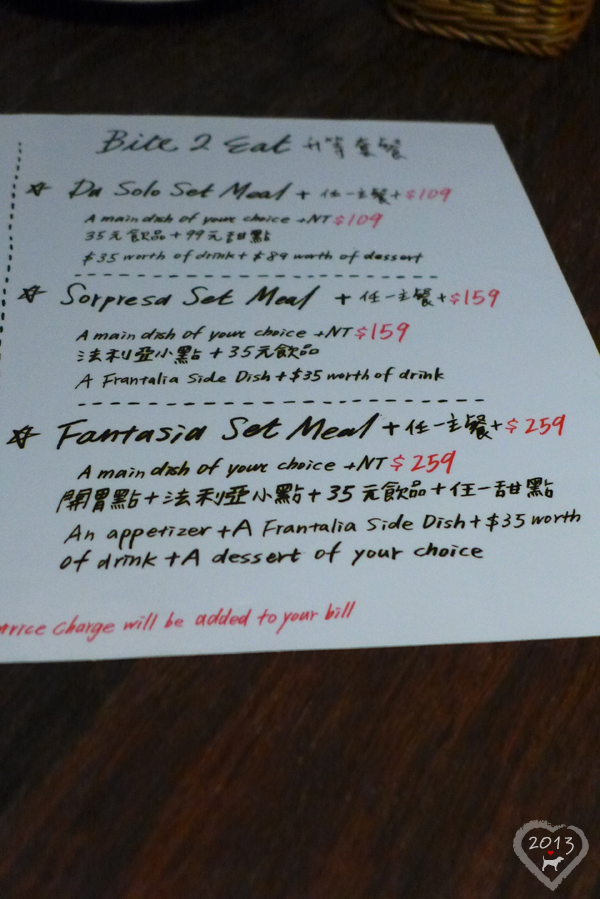 Bite 2 Eat 升等套餐
☆ Da Solo Set Meal + 任一主餐+$109
A main dish of your choice +NT$109
35元飲品+99元甜點
$35 worth of drink + $89 worth of dessert
☆ Sorpresa Set Meal + 任一主餐+$159
A main dish of your choice +NT$159
法利亞小點+35元飲品
A Frantalia Side Dish+$35 worth of drink
☆ Fantasia Set Meal +任一主餐+$259
A main dish of your choice +NT$259
開胃點+法利亞小點+35元飲品+任一甜點
An appetizer +A Frantalia Side Dish+$35 worth
of drink +A dessert of your choice
charge will be added to your bill
2013